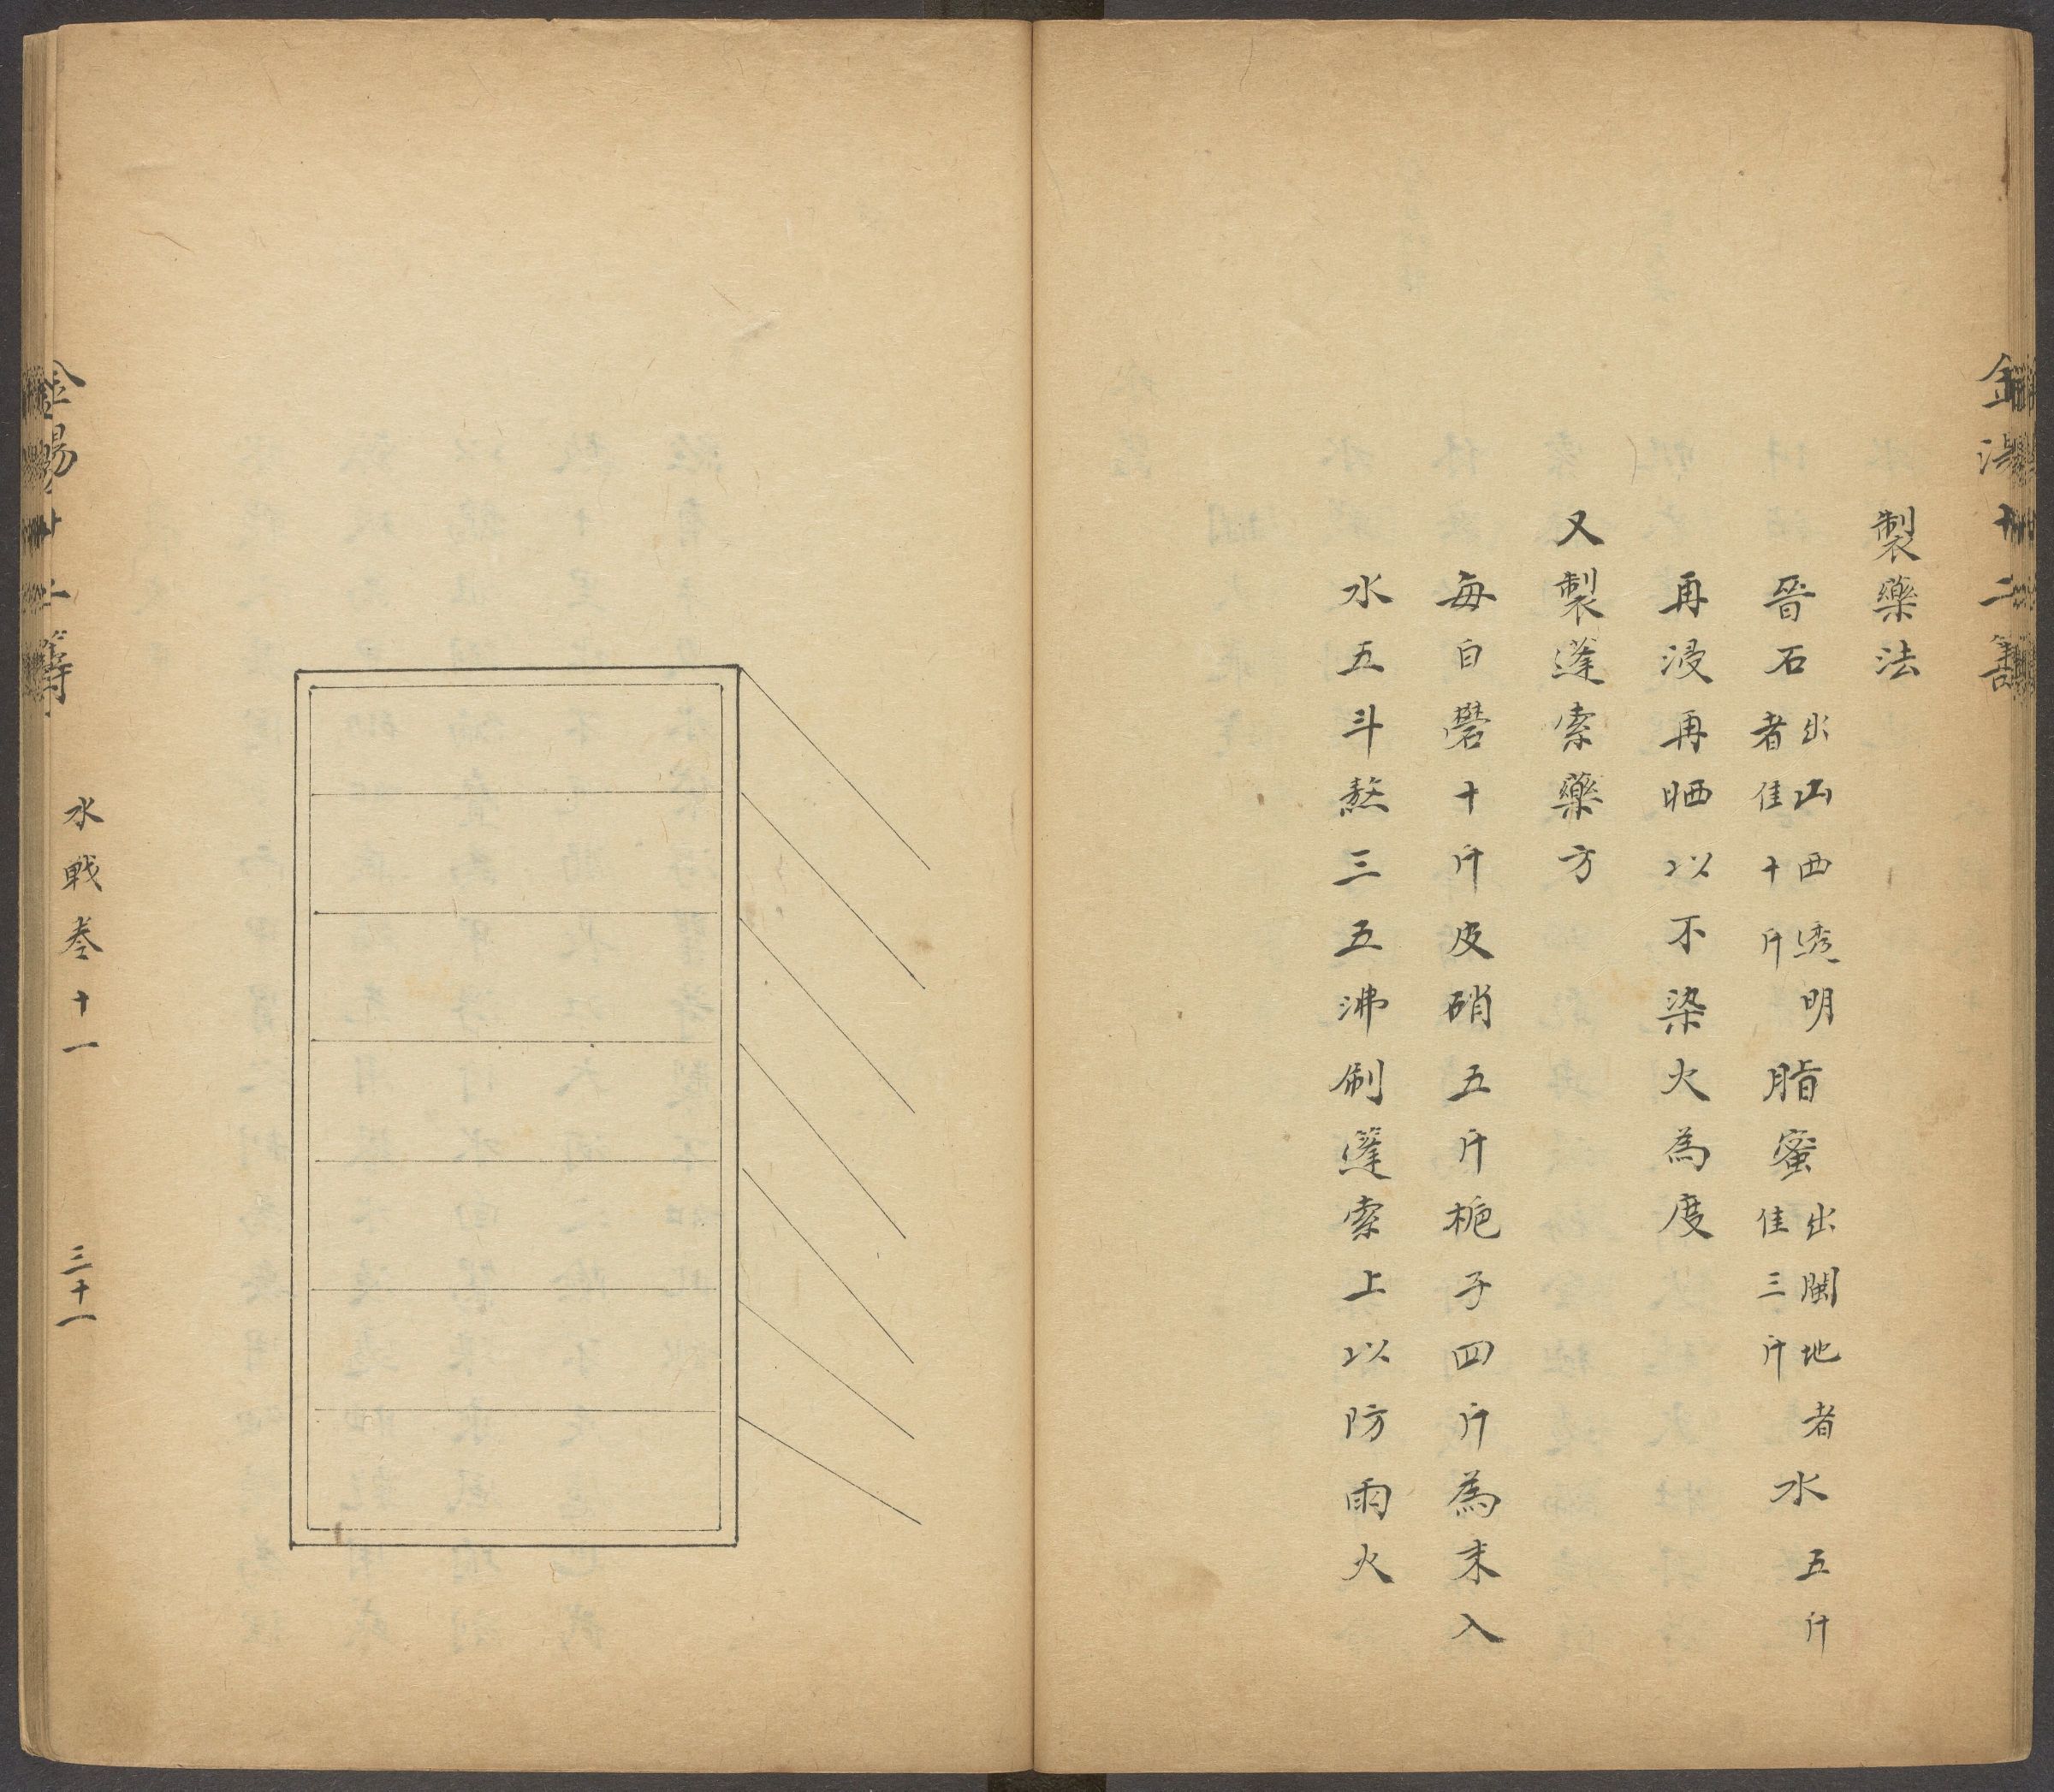 金湯十二籌
製藥法
晉石出山西透明者佳十斤脂蜜出閩地者佳三斤水五斤
再浸再晒以不染火為度
又製蓬索藥方
每白礬十斤皮硝五斤梔子四斤為末入
水五斗熬三五沸刷篷索上以防雨火
金湯十二籌
水戰卷十一
三十一